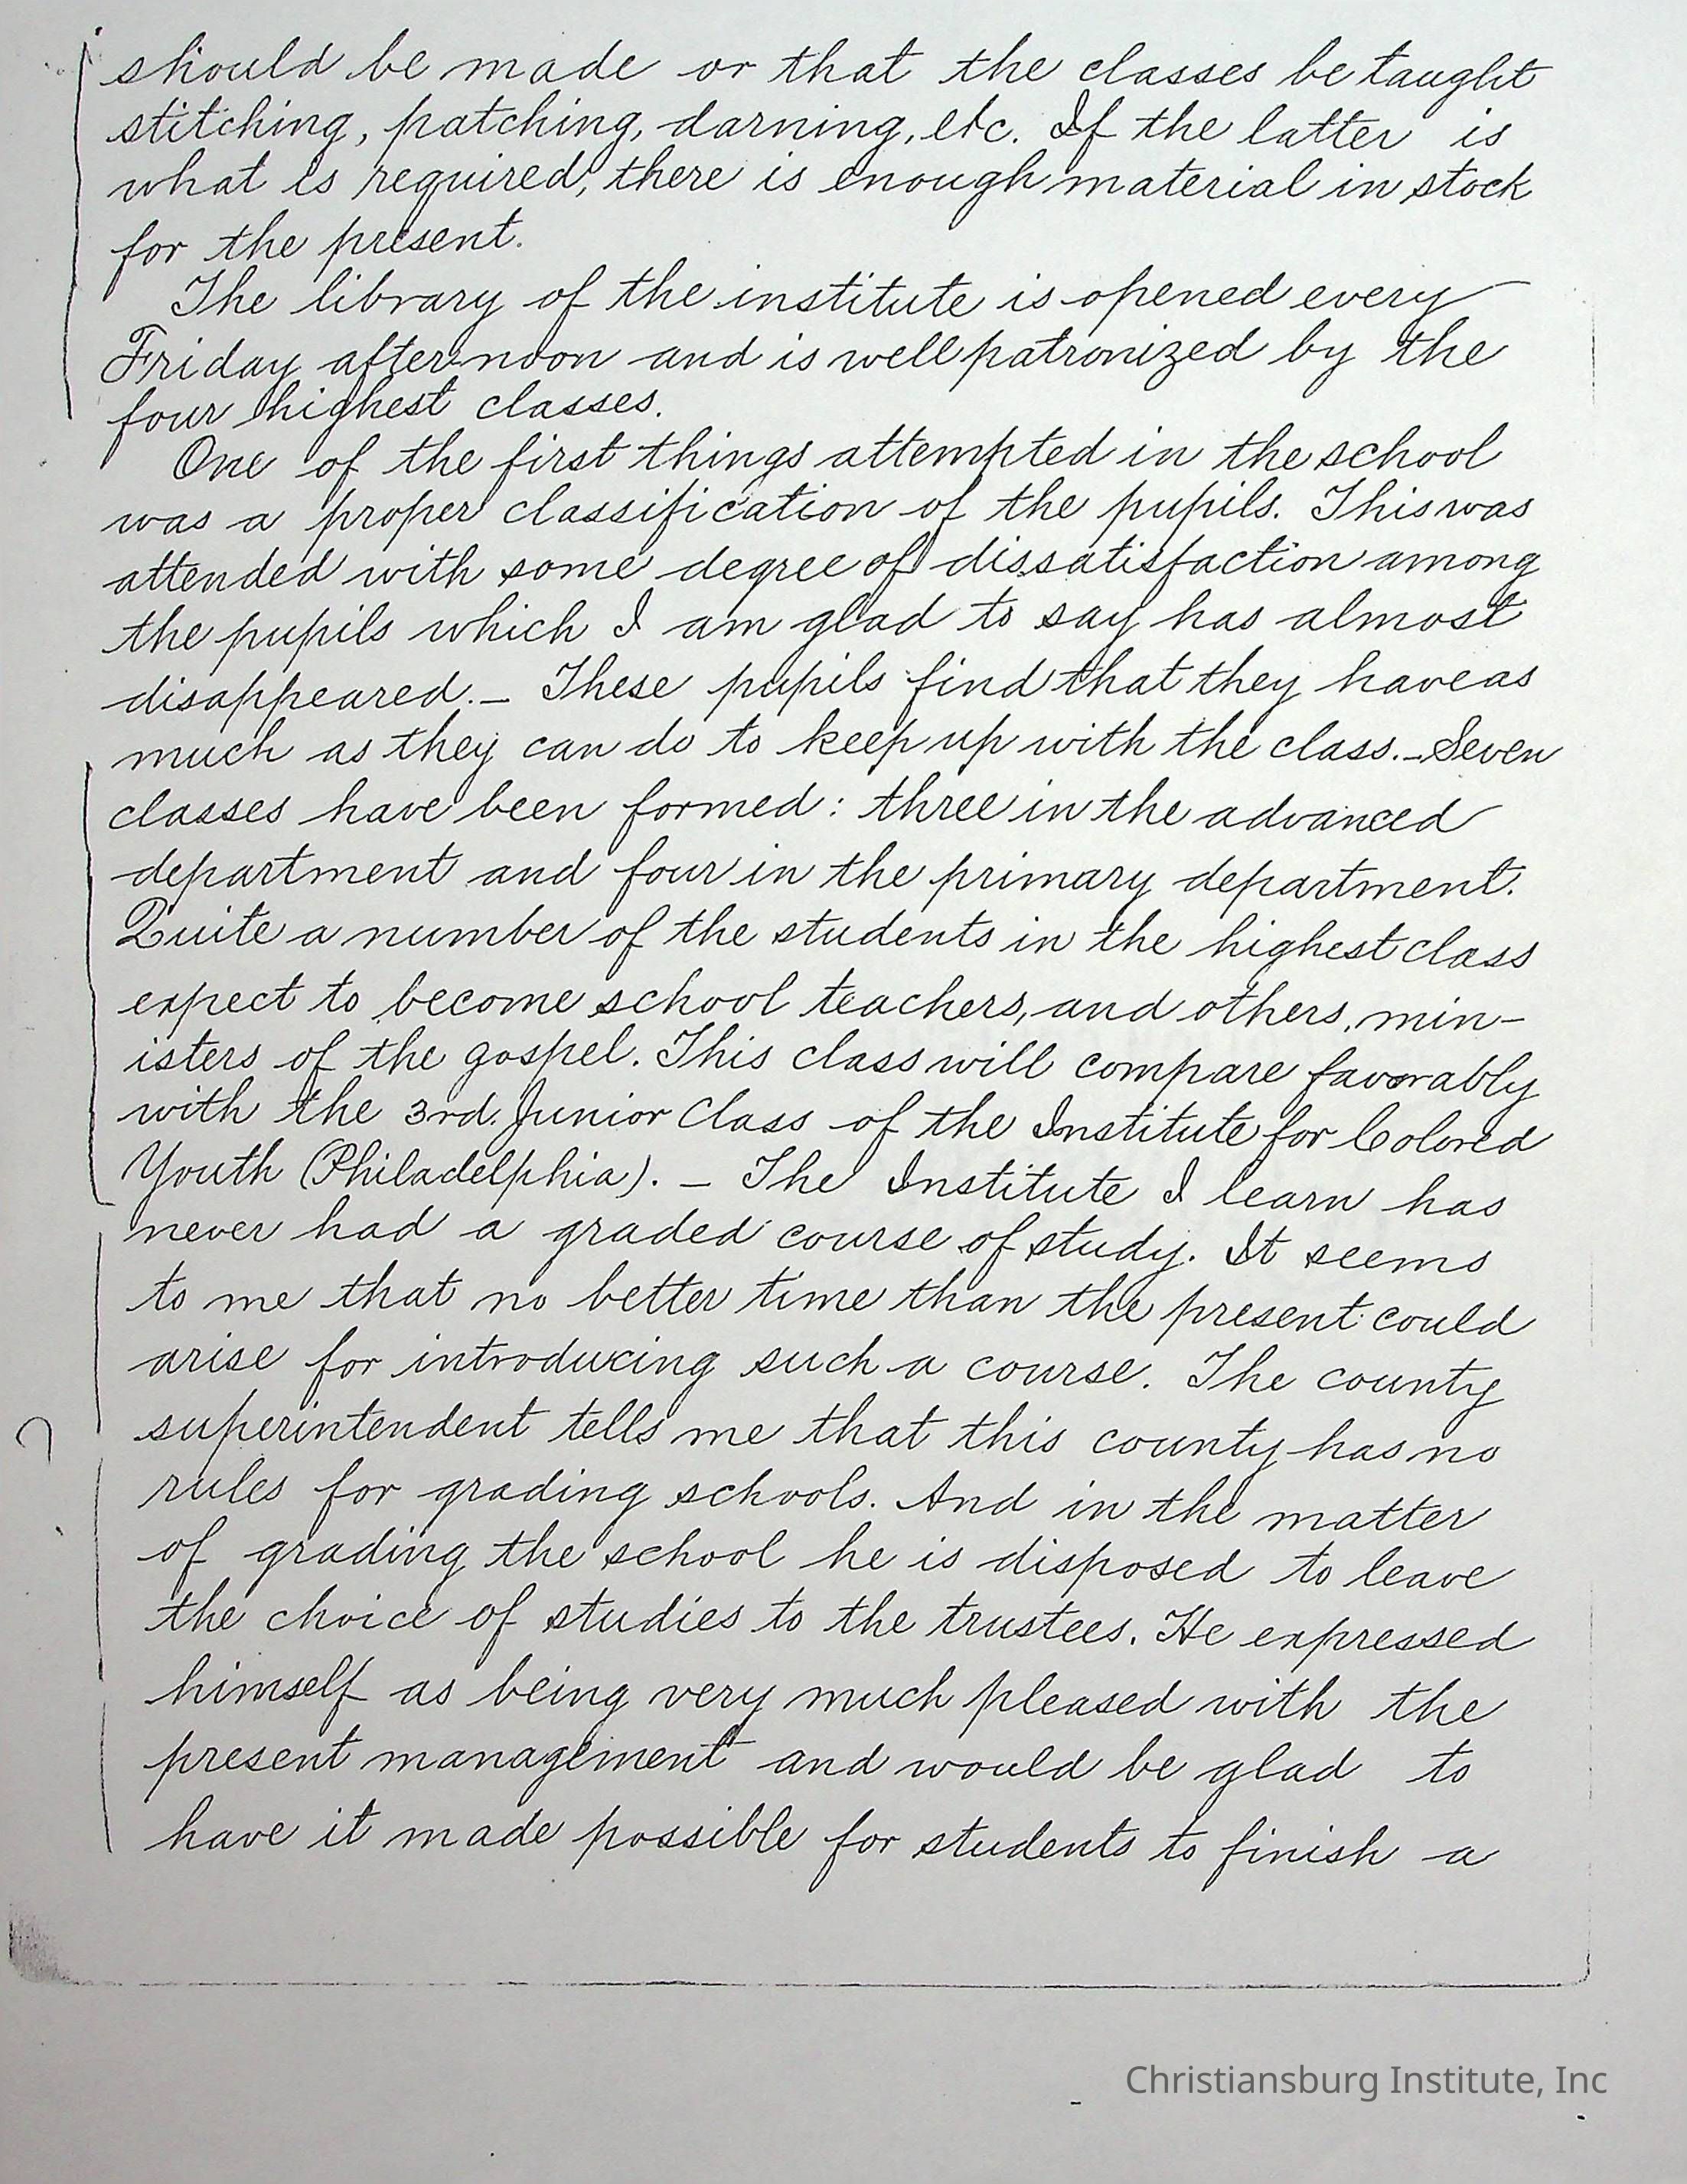 should be made or that the classes be taught
stitching, patching, darning, etc. If the latter is
what is required, there is enough material in stock
for the present.
The library of the institute is opened every
Friday afternoon and is well patronized by the
four highest classes.
One of the first things attempted in the school
was a proper classification of the pupils. This was
attended with some degree of dissatisfaction among
the pupils which I am glad to say has almost
disappeared. _ These pupils find that they have as
much as they can do to keep up with the class. _ Seven
classes have been formed: three in the advanced
department and four in the primary department.
Quite a number of the students in the highest class
expect to become school teachers, and others, min-
isters of the gospel. This class will compare favorably
with the 3rd. Junior Class of the Institute for Colored
Youth (Philadelphia). _ The Institute I learn has
never had a graded course of study. It seems
to me that no better time than the present could
arise for introducing such a course. The county
superintendent tells me that this county has no
rules for grading schools. And in the matter
of grading the school he is disposed to leave
the choice of studies to the trustees. He expressed
himself as being very much pleased with the
present management and would be glad to
have it made possible for students to finish a
Christiansburg Institute, Inc